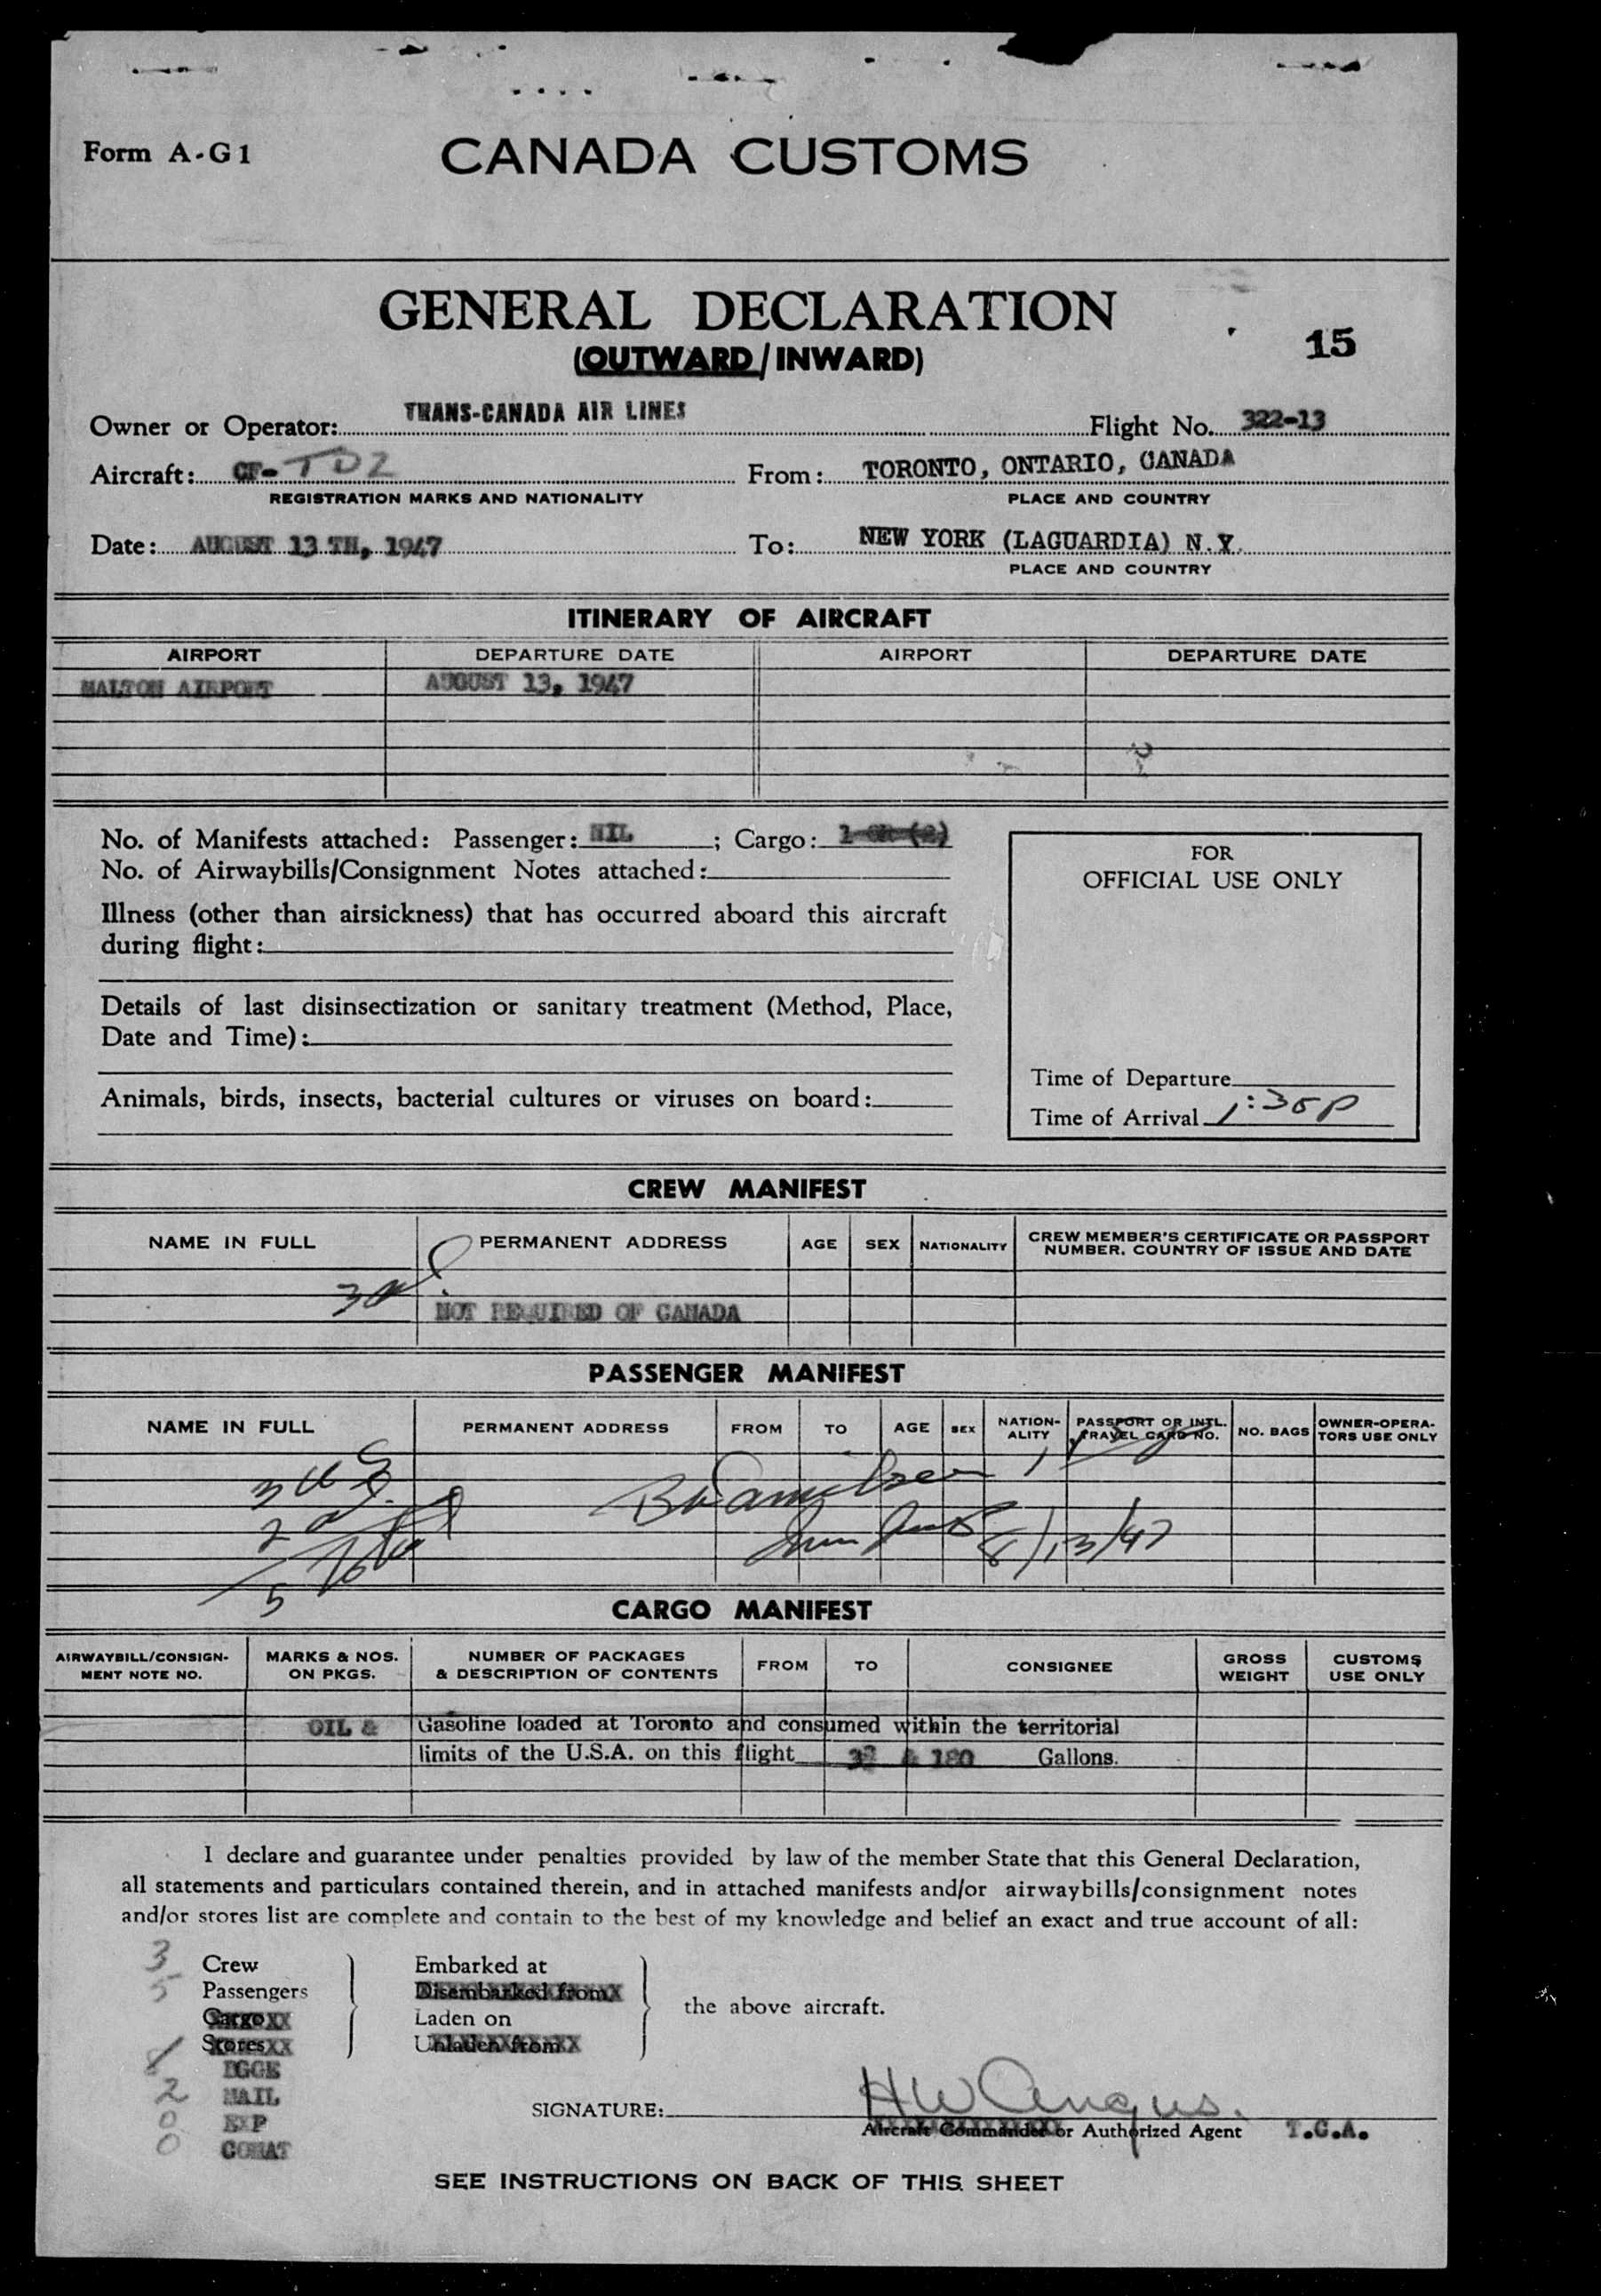 Form A-G1
CANADA CUSTOMS
GENERAL DECLARATION
(OUTWARD/INWARD)
15
Owner or Operator: TRANS-CANADA AIR LINES Flight No. 322-13
Aircraft: CF-TDZ From: TORONTO, ONTARIO, CANADA
REGISTRATION MARKS AND NATIONALITY PLACE AND COUNTRY
Date: AUGUST 13 TH, 1947 To: NEW YORK (LAGUARDIA) N.Y.
PLACE AND COUNTRY
ITINERARY OF AIRCRAFT
AIRPORT DEPARTURE DATE AIRPORT DEPARTURE DATE
MALTON AIRPORT AUGUST 13, 1947
No. of Manifests attached: Passenger: NIL ; Cargo:
No. of Airwaybills/Consignment Notes attached:
Illness (other than airsickness) that has occurred aboard this aircraft
during flight:
Details of last disinsectization or sanitary treatment (Method, Place,
Date and Time):
Animals, birds, insects, bacterial cultures or viruses on board:
FOR
OFFICIAL USE ONLY
Time of Departure
Time of Arrival 1:30p
CREW MANIFEST
NAME IN FULL PERMANENT ADDRESS AGE SEX NATIONALITY CREW MEMBER'S CERTIFICATE OR PASSPORT
NUMBER, COUNTRY OF ISSUE AND DATE
3
NOT REQUIRED OF CANADA
PASSENGER MANIFEST
NAME IN FULL PERMANENT ADDRESS FROM TO AGE SEX NATION-
ALITY PASSPORT OR INTL.
TRAVEL CARD NO. NO. BAGS OWNER-OPERA-
TORS USE ONLY
3 US
2
5 Total
8/13/47
CARGO MANIFEST
AIRWAYBILL/CONSIGN-
MENT NOTE NO. MARKS & NOS.
ON PKGS. NUMBER OF PACKAGES
& DESCRIPTION OF CONTENTS FROM TO CONSIGNEE GROSS
WEIGHT CUSTOMS
USE ONLY
OIL & Gasoline loaded at Toronto and consumed within the territorial
limits of the U.S.A. on this flight & 180 Gallons.
I declare and guarantee under penalties provided by law of the member State that this General Declaration,
all statements and particulars contained therein, and in attached manifests and/or airwaybills/consignment notes
and/or stores list are complete and contain to the best of my knowledge and belief an exact and true account of all:
3 Crew Embarked at
5 Passengers Disembarked from
Cargo Laden on
Stores Unladen from
the above aircraft.
BGGE
2 MAIL
0 EXP
0 COMAT
SIGNATURE: HW Angus.
Aircraft Commander or Authorized Agent T.C.A.
SEE INSTRUCTIONS ON BACK OF THIS SHEET